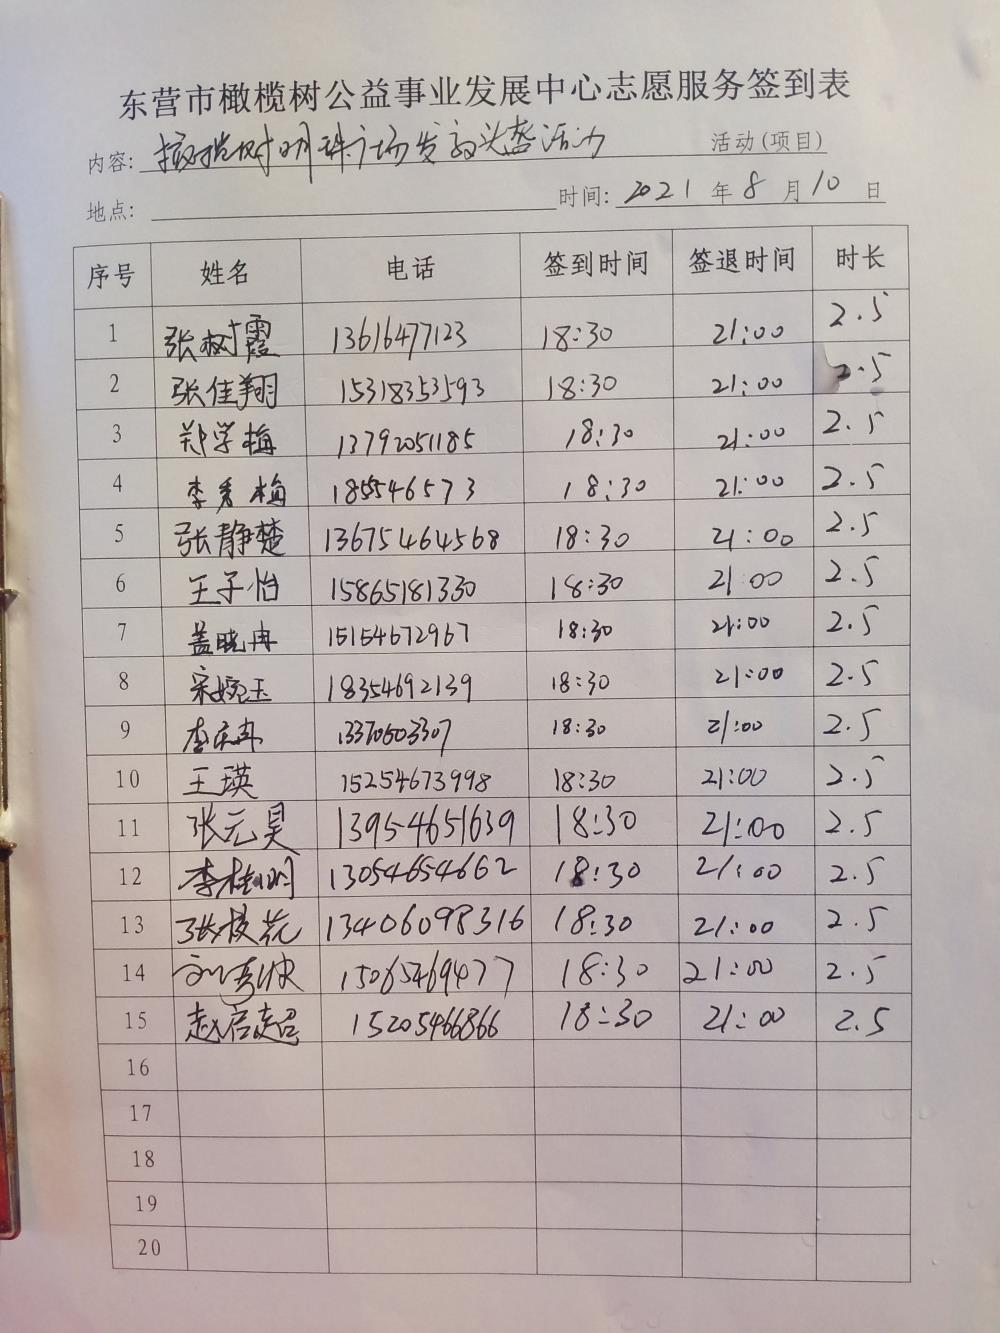 东营市橄榄树公益事业发展中心志愿服务签到表
内容: 橄榄树明珠广场发放头盔活动 活动(项目)
地点: 时间: 2021 年 8 月 10 日
序号 姓名 电话 签到时间 签退时间 时长
1 张树霞 13616477123 18:30 21:00 2.5
2 张佳翔 15318353593 18:30 21:00 2.5
3 郑学梅 13792051185 18:30 21:00 2.5
4 李秀梅 185546573 18:30 21:00 2.5
5 张静楚 13675464568 18:30 21:00 2.5
6 王子怡 15865181330 18:30 21:00 2.5
7 盖晓冉 15154672967 18:30 21:00 2.5
8 宋婉玉 18354692139 18:30 21:00 2.5
9 13370603307 18:30 21:00 2.5
10 王瑛 15254673998 18:30 21:00 2.5
11 张元昊 13954651639 18:30 21:00 2.5
12 李桂明 13054654662 18:30 21:00 2.5
13 张枝花 13406098316 18:30 21:00 2.5
14 15065469477 18:30 21:00 2.5
15 赵启超 15205466866 18:30 21:00 2.5
16
17
18
19
20